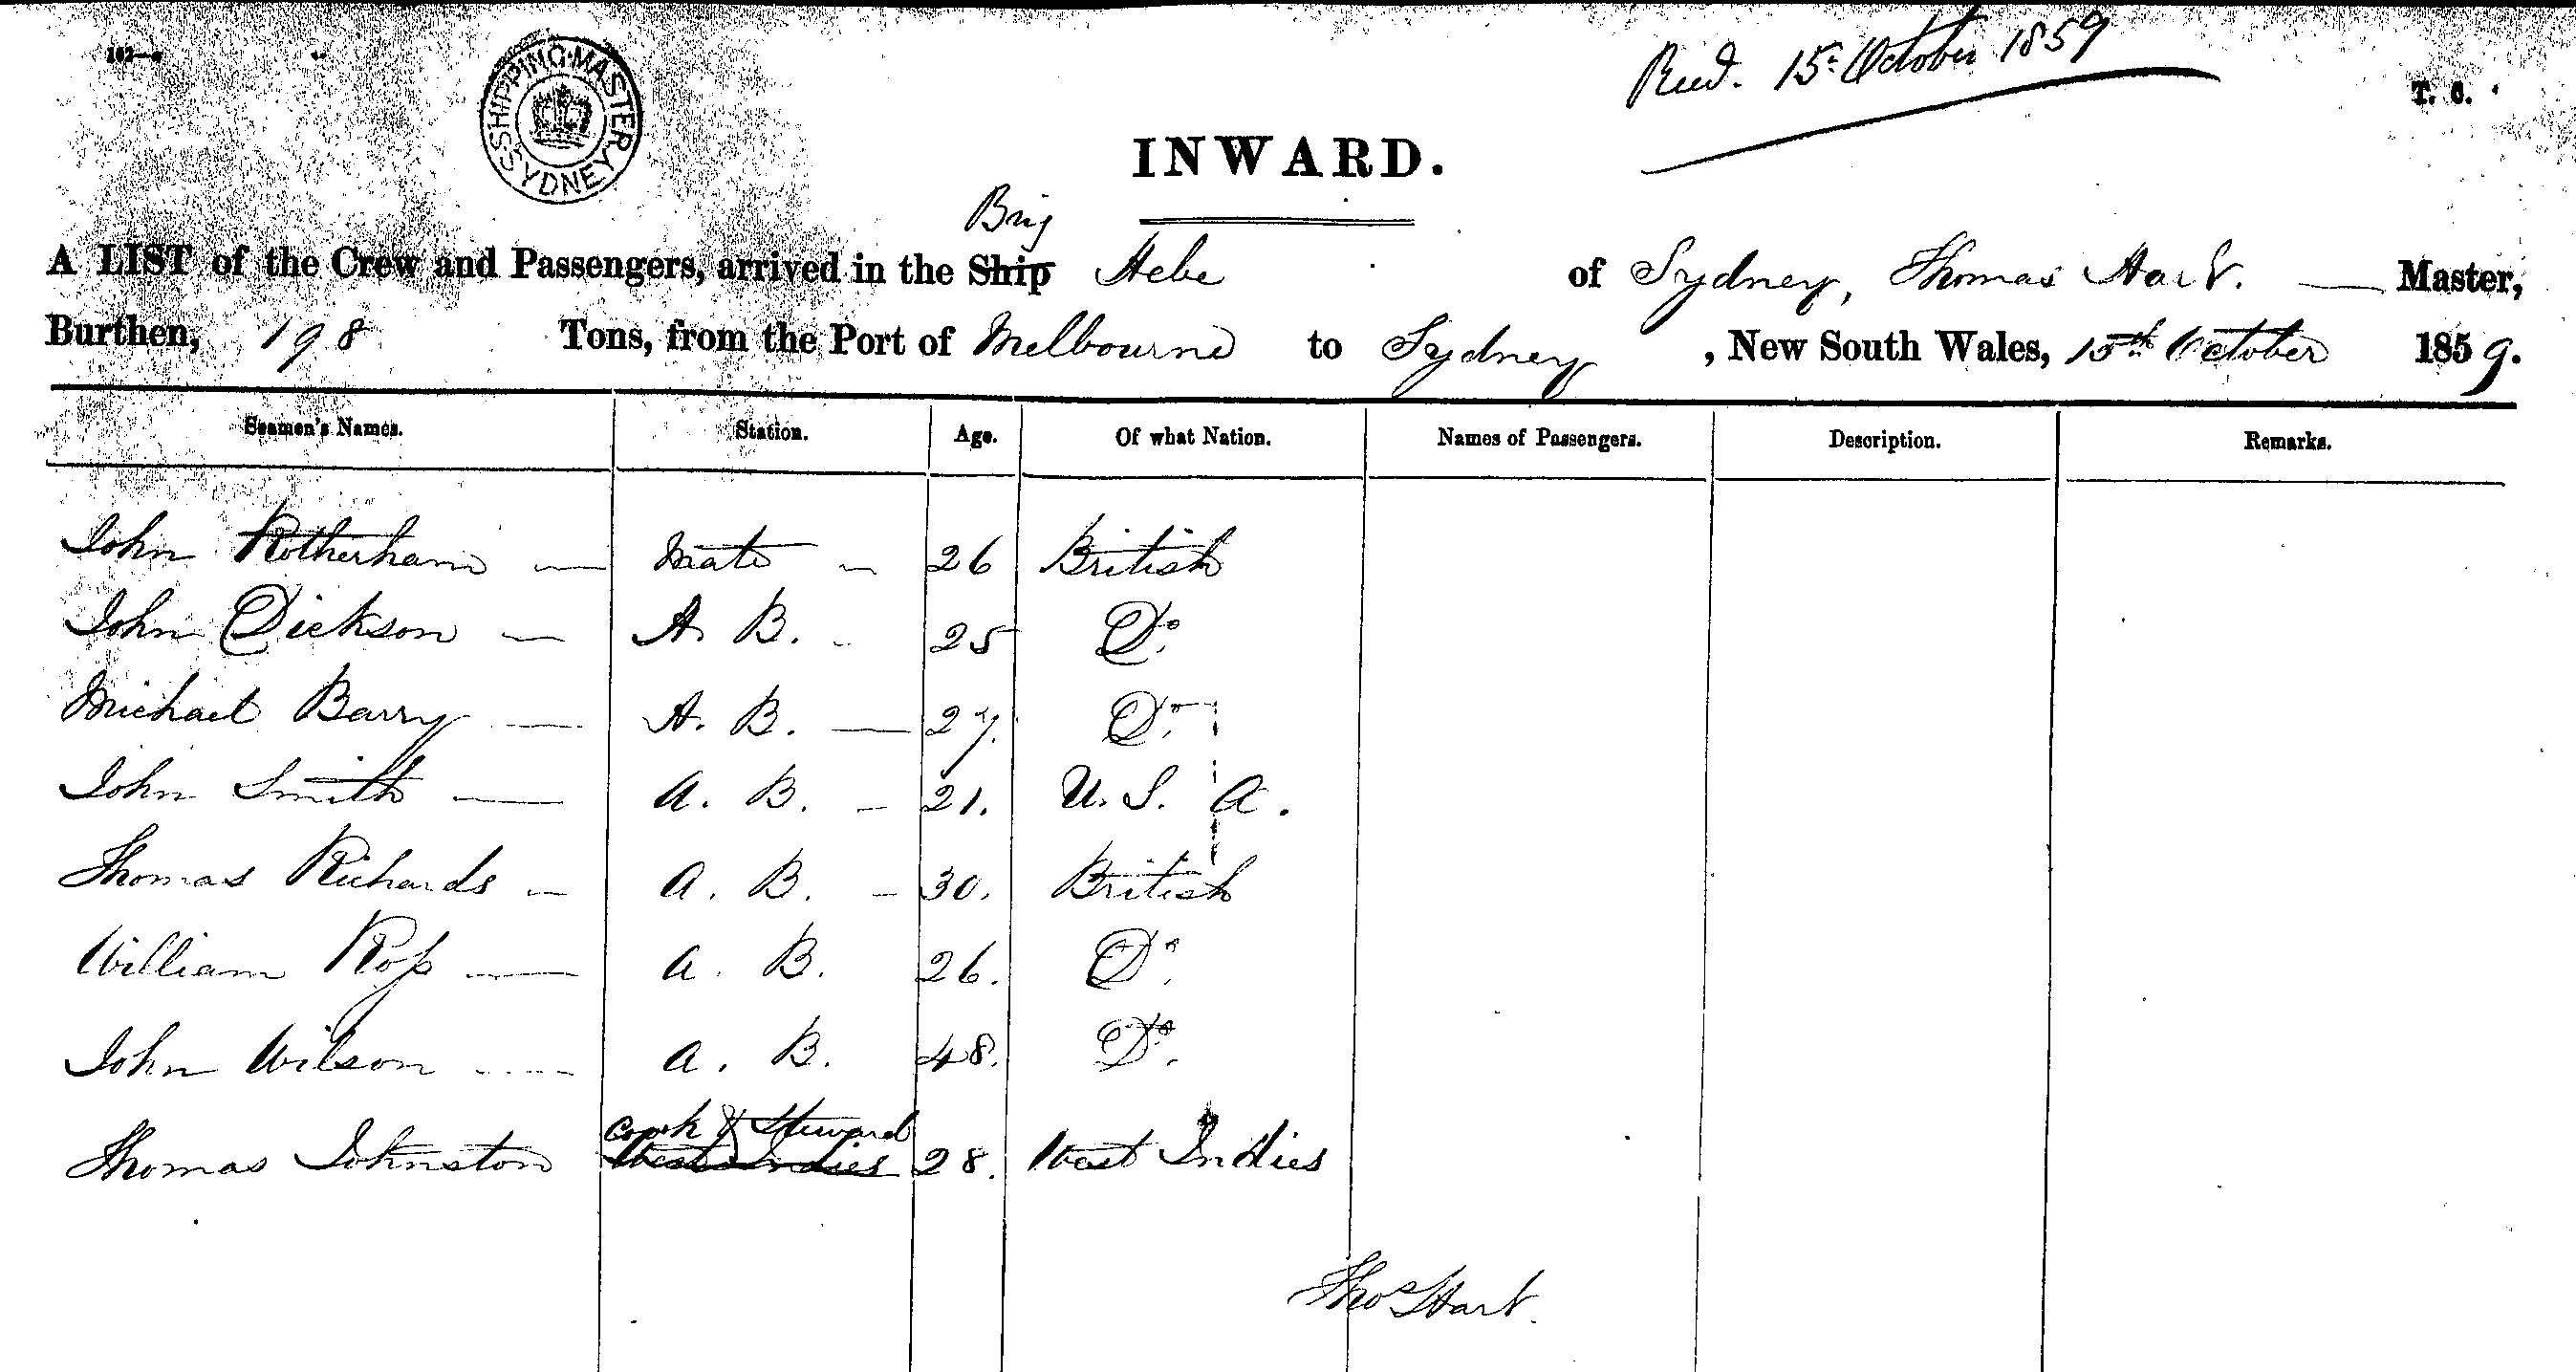 162—a
SHIPPING MASTER SYDNEY
Recd. 15th October 1859
T. C.
INWARD.
Brig
A LIST of the Crew and Passengers, arrived in the Ship Hebe of Sydney, Thomas Hart. — Master,
Burthen, 198 Tons, from the Port of Melbourne to Sydney, New South Wales, 15th October 1859.
Seamen's Names. Station. Age. Of what Nation. Names of Passengers. Description. Remarks.
John Rotherham — Mate — 26 British
John Dickson — A. B. - 25 Do.
Michael Barry — A. B. — 27. Do.
John Smith — A. B. — 21. U. S. A.
Thomas Richards — A. B. — 30. British
William Ross — A. B. 26. Do.
John Wilson — A. B. 48. Do.
Cook & Steward
Thomas Johnston West Indies 28. West Indies
Thos Hart.